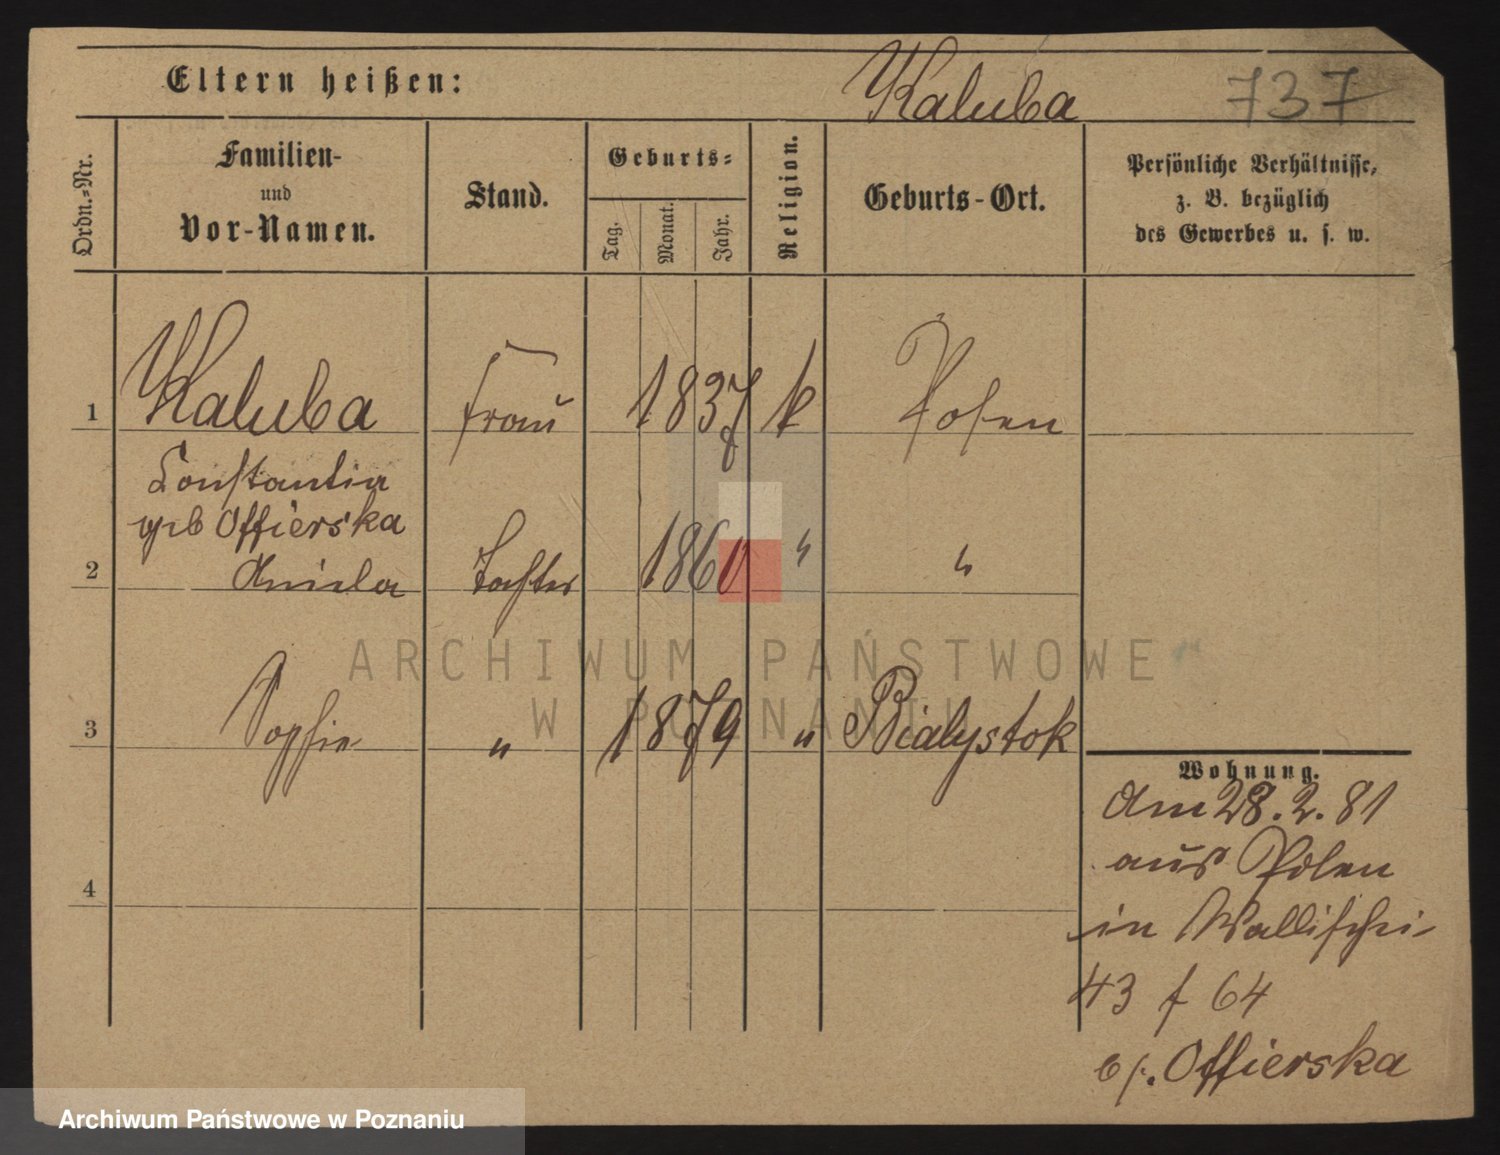 Eltern heißen:
Kaluba
737
Ordn.-Nr.
Familien-
und
Vor-Namen.
Stand.
Geburts-
Tag.
Monat.
Jahr.
Religion.
Geburts-Ort.
Persönliche Verhältnisse,
z. B. bezüglich
des Gewerbes u. s. w.
1 Kaluba Frau 1837 k Posen
Constantia
geb Offierska
2 Aniela Tochter 1860 " "
ARCHIWUM PAŃSTWOWE
W POZNANIU
3 Sophie " 1879 " Bialystok
4
Wohnung.
Am 28.2.81
aus Polen
in Wallischei
43 f 64
b/. Offierska
Archiwum Państwowe w Poznaniu